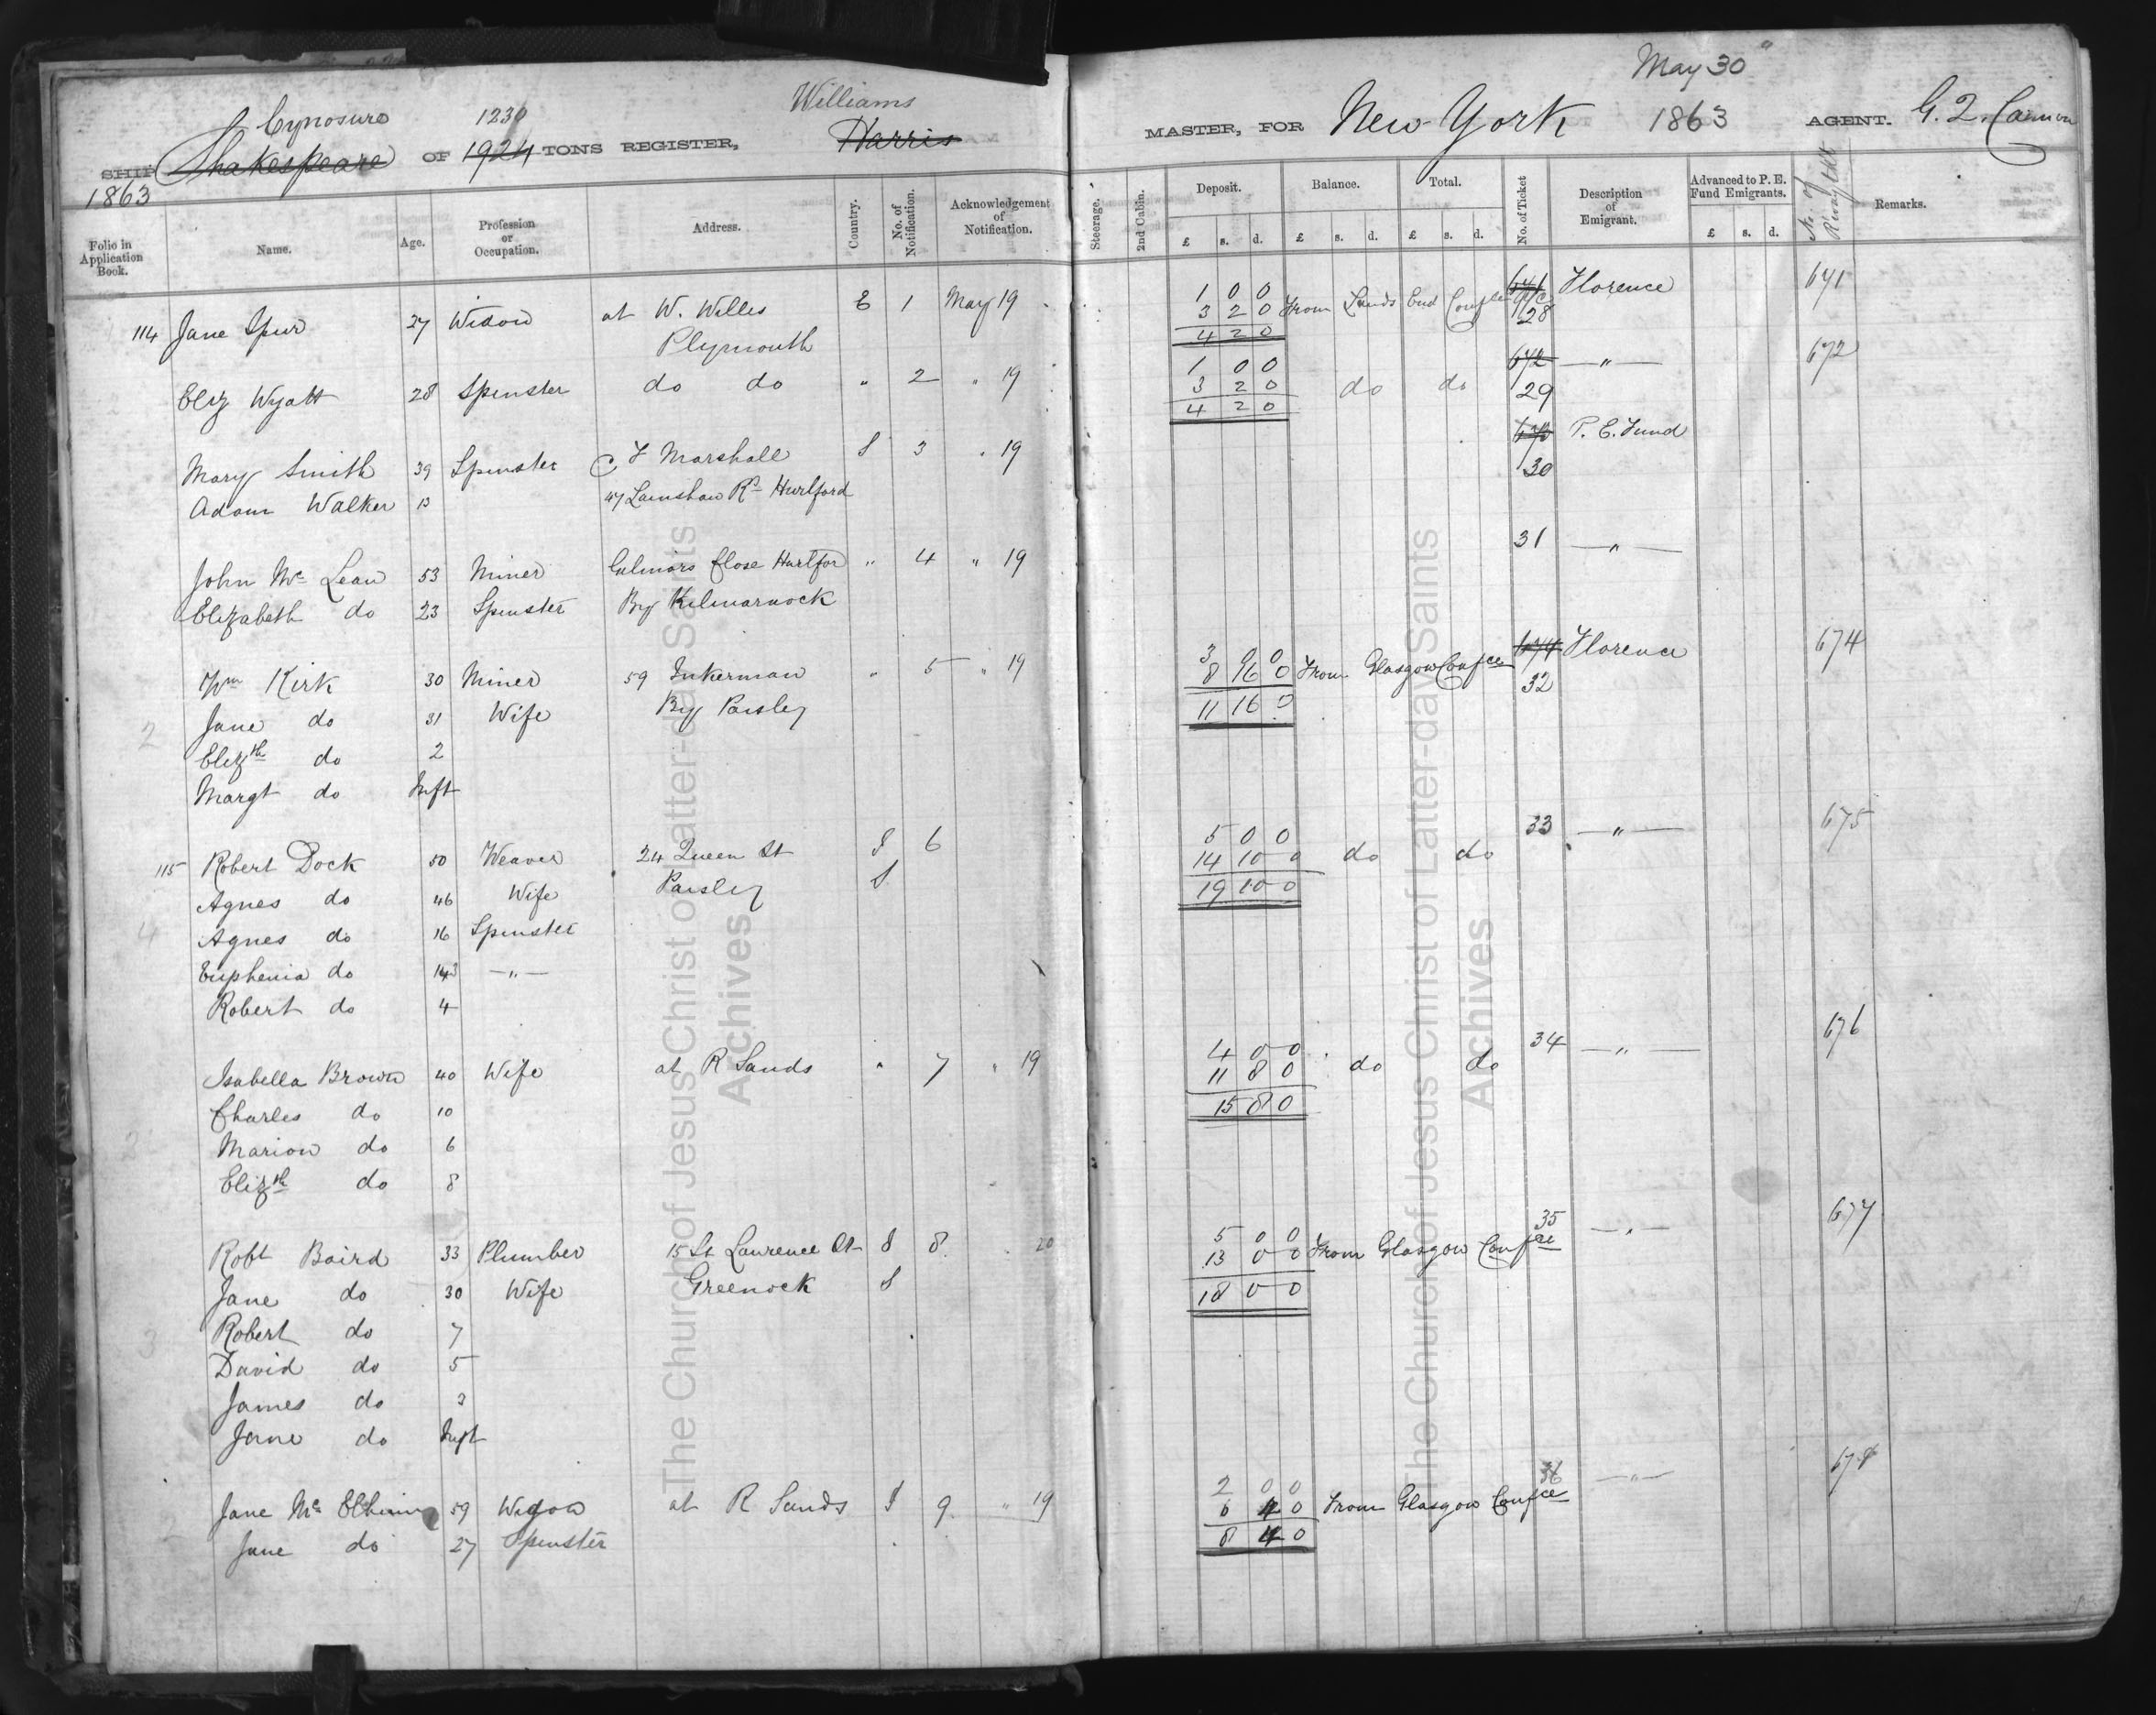 May 30
Cynosure 1230 Williams
SHIP Shakespeare OF 1924 TONS REGISTER, Harris MASTER, FOR New York 1863 AGENT. G. Q. Cannon
1863
Folio in Application Book. Name. Age. Profession or Occupation. Address. Country. No. of Notification. Acknowledgement of Notification. Steerage. 2nd Cabin. Deposit. Balance. Total. No. of Ticket Description of Emigrant. Advanced to P. E. Fund Emigrants. No. of Remarks.
£ s. d. £ s. d. £ s. d. £ s. d.
1 0 0 671 Florence 671
114 Jane Spur 27 Widow at W. Willis E 1 May 19 3 2 0 From Lands End Confce 28
Plymouth 4 2 0
1 0 0 672 — " — 672
Eliz Wyatt 28 Spinster do do " 2 " 19 3 2 0 do do 29
4 2 0
673 P. E. Fund
Mary Smith 39 Spinster C F Marshall S 3 " 19 30
Adam Walker 13 47 Lainshaw Rd Hurlford
31 — " —
John Mc Lean 53 Miner Gilmors Close Hurlfor " 4 " 19
Elizabeth do 23 Spinster By Kilmarnock
3 0 0 674 Florence 674
Wm Kirk 30 Miner 59 Inkerman " 5 " 19 8 16 0 From Glasgow Confce 32
2 Jane do 31 Wife By Paisley 11 16 0
Elizth do 2
Margt do Inft
5 0 0 33 — " — 675
115 Robert Dock 50 Weaver 24 Queen St S 6 14 10 0 do do
Agnes do 46 Wife Paisley S 19 10 0
4 Agnes do 16 Spinster
Euphemia do 143 — " —
Robert do 4
4 0 0 34 — " — 676
Isabella Brown 40 Wife at R Sands " 7 " 19 11 8 0 do do
Charles do 10 15 8 0
2 Marion do 6
Elizth do 8
5 0 0 35 — " — 677
Robt Baird 33 Plumber 15 St Laurence St S 8 " 20 13 0 0 From Glasgow Confce
Jane do 30 Wife Greenock S 18 0 0
3 Robert do 7
David do 5
James do 3
Jane do Inft
2 0 0 36 — " — 678
2 Jane Mc 59 Widow at R Sands S 9 " 19 6 4 0 From Glasgow Confce
Jane do 27 Spinster 8 4 0
The Church of Jesus Christ of Latter-day Saints
Archives
The Church of Jesus Christ of Latter-day Saints
Archives